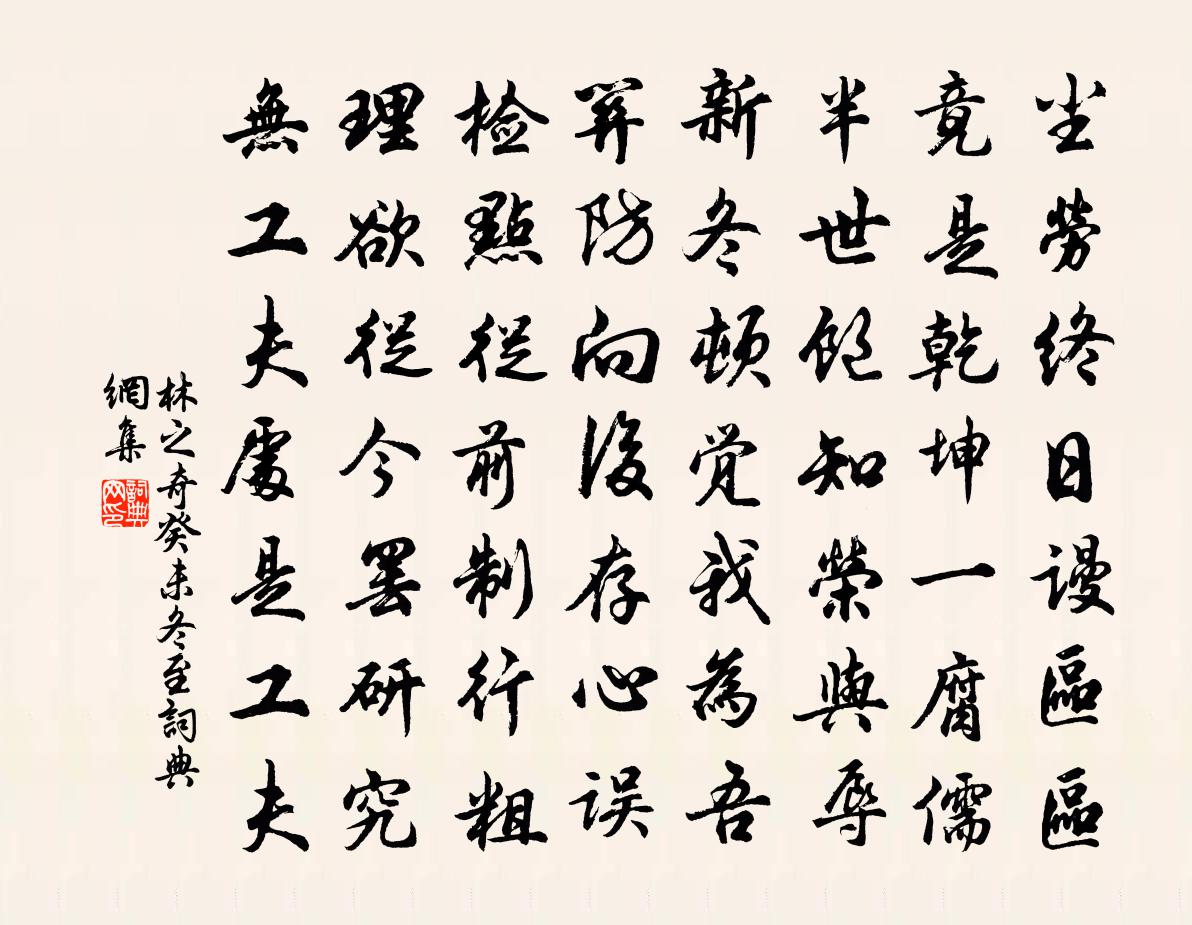 尘勞終日謾區區
竟是乾坤一腐儒
半世飽知榮與辱
新冬頓覚我為吾
算防向後存心误
检點從前制行粗
理欲從今罢研究
無工夫處是工夫
林之奇癸未冬至詞典
網集
詞典
网印